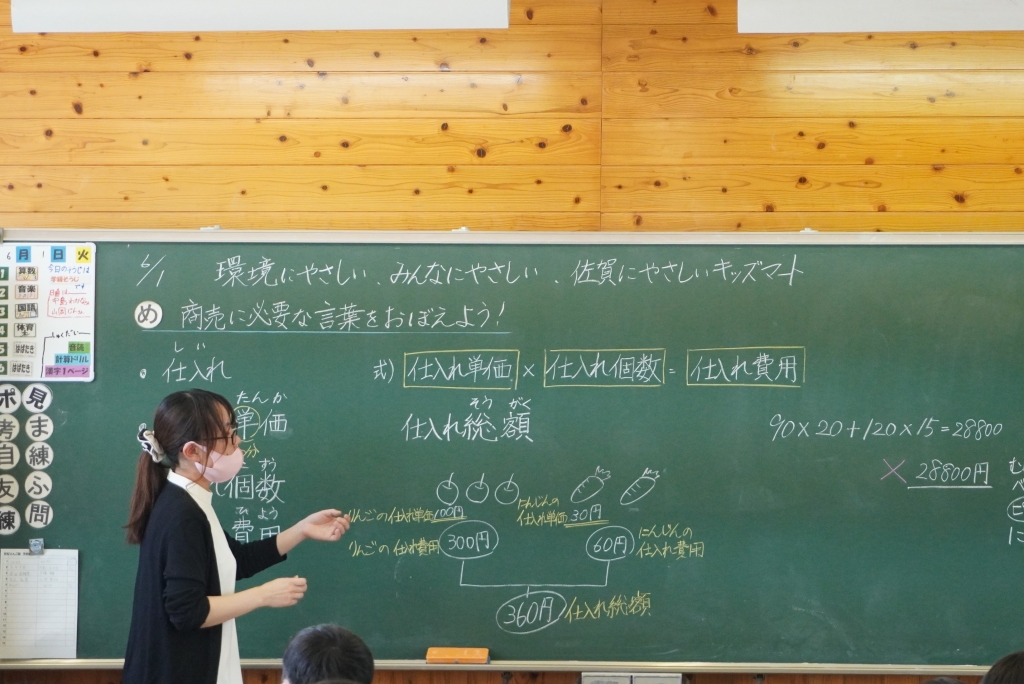 6/1 環境にやさしい、みんなにやさしい、佐賀にやさしいキッズマート
め 商売に必要な言葉をおぼえよう!
しい
・仕入れ
式) 仕入れ単価 × 仕入れ個数 = 仕入れ費用
たんか
単価
そう がく
仕入れ総額
個数
ひ よう
費用
りんごの仕入れ単価100円
にんじんの
仕入れ単価30円
りんごの仕入れ費用 300円
60円 にんじんの
仕入れ費用
360円 仕入れ総額
90×20+120×15=28800
× 28800円
6 月 1 日 火
1 算数
2 音楽
3 国語
4 体育
5 はばたき
6 はばたき
音読
計算ドリル
漢字1ページ
ポ 見
考 ま
自 練
友 ふ
練 問